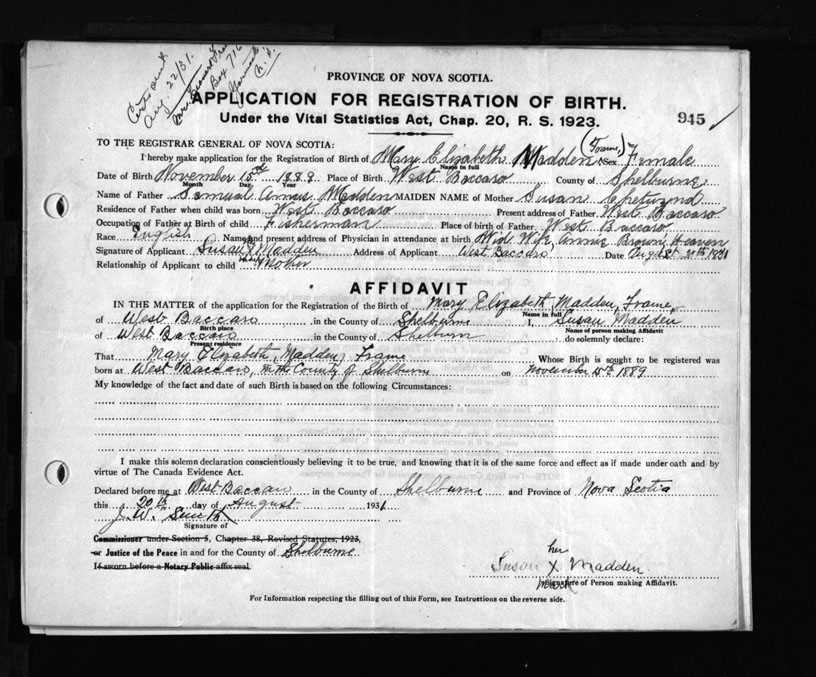 Cert sent
Aug 22/31.
Box 716
N.S.
PROVINCE OF NOVA SCOTIA.
APPLICATION FOR REGISTRATION OF BIRTH.
Under the Vital Statistics Act, Chap. 20, R. S. 1923.
945
TO THE REGISTRAR GENERAL OF NOVA SCOTIA:
I hereby make application for the Registration of Birth of Mary Elizabeth Madden (Frame) Sex Female
Name in full
Date of Birth November 15th 1889 Place of Birth West Baccaro County of Shelburne
Month Day Year
Name of Father Samuel Madden MAIDEN NAME of Mother Susan
Residence of Father when child was born West Baccaro Present address of Father West Baccaro
Occupation of Father at Birth of child Fisherman Place of birth of Father West Baccaro
Race English Name and present address of Physician in attendance at birth Mid Wife, Annie Brown, Heaven
Signature of Applicant Susan Madden Address of Applicant West Baccaro Date August 20th 1931
Relationship of Applicant to child Mother
AFFIDAVIT
IN THE MATTER of the application for the Registration of the Birth of Mary Elizabeth Madden, Frame
Name in full
of West Baccaro in the County of Shelburne I, Susan Madden
Birth place Name of person making Affidavit
of West Baccaro in the County of Shelburn do solemnly declare:
Present residence
That Mary Elizabeth, Madden, Frame Whose Birth is sought to be registered was
born at West Baccaro, in the County of Shelburne on November 15th 1889
My knowledge of the fact and date of such Birth is based on the following Circumstances:
I make this solemn declaration conscientiously believing it to be true, and knowing that it is of the same force and effect as if made under oath and by
virtue of The Canada Evidence Act.
Declared before me at West Baccaro in the County of Shelburne and Province of Nova Scotia
this 20th day of August 1931
J. W. Smith
Signature of
Commissioner under Section 5, Chapter 38, Revised Statutes, 1923,
or Justice of the Peace in and for the County of Shelburne
If sworn before a Notary Public affix seal.
her
Susan X Madden
mark
Signature of Person making Affidavit.
For Information respecting the filling out of this Form, see Instructions on the reverse side.